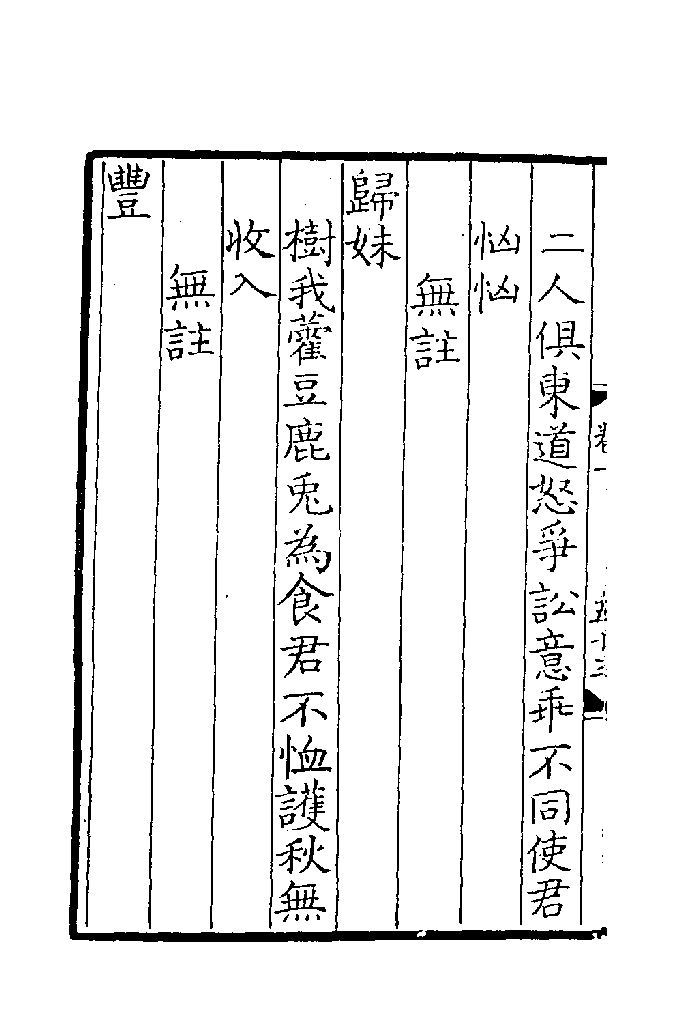 二人俱東道怒爭訟意乖不同使君
忷忷
無註
歸妹
樹我藿豆鹿兎為食君不恤護秋無
收入
無註
豐